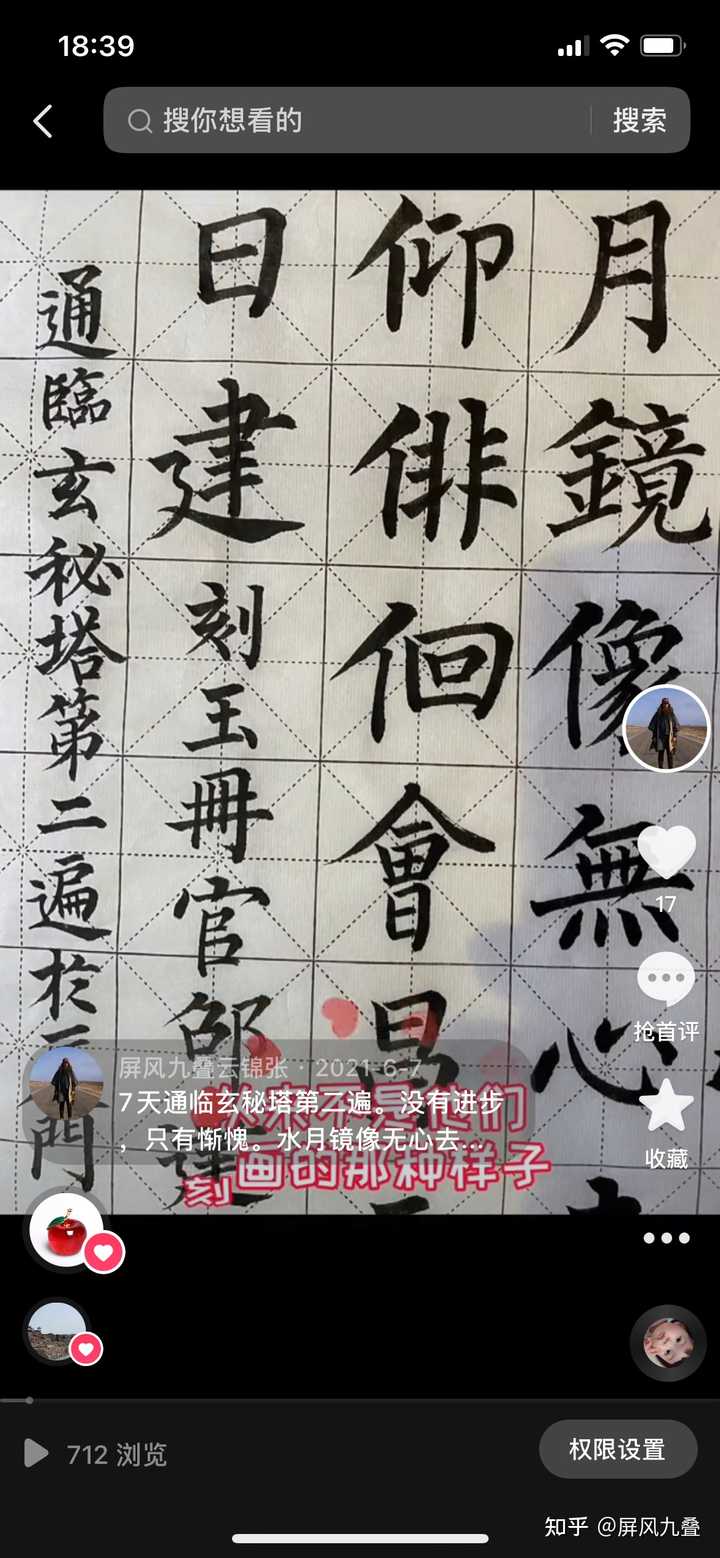 18:39
搜你想看的
搜索
月鏡像無心
仰俳佪會昌
日建刻玉冊官邵建
通臨玄秘塔第二遍於
門
刻
17
抢首评
收藏
屏风九叠云锦张 · 2021-6-7
7天通临玄秘塔第二遍。没有进步
，只有惭愧。水月镜像无心去...
画的那种样子
712 浏览
权限设置
知乎 @屏风九叠